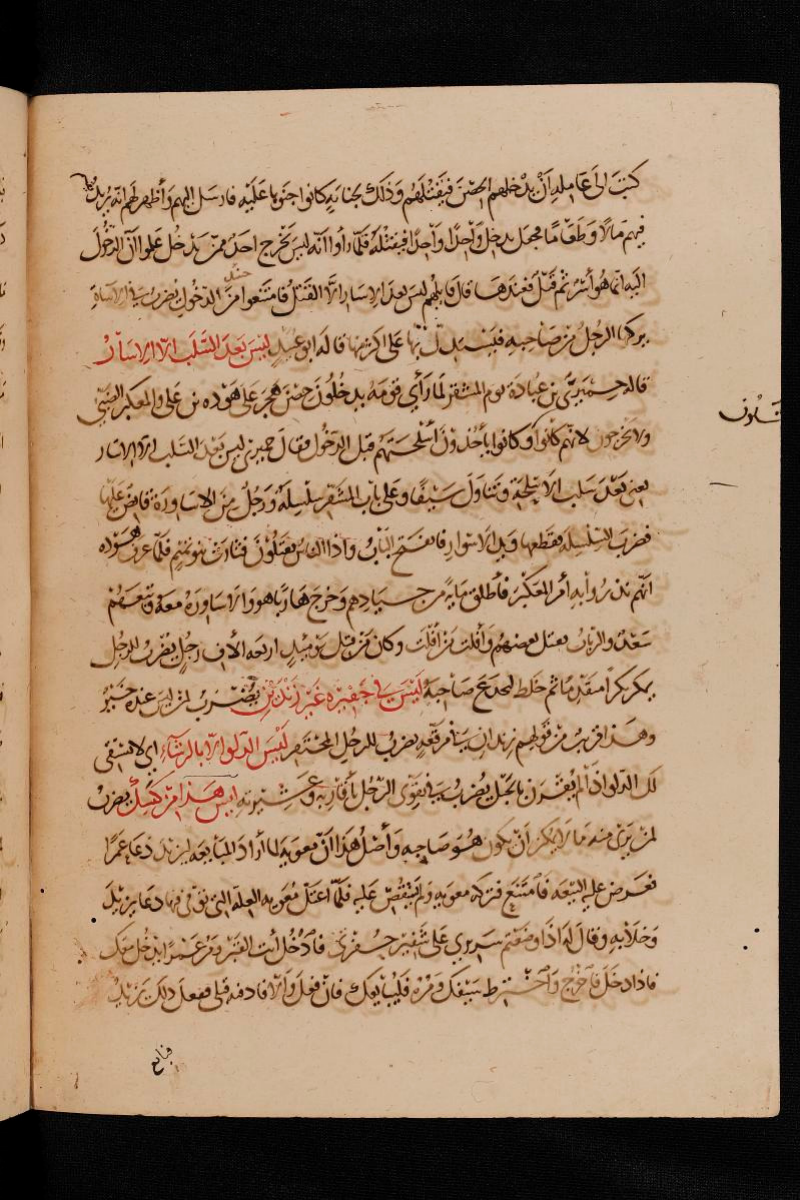 كتب الى عامله ان يدخلهم الحصن فيقتلهم وذلك بجناية كانوا جنوها عليه فارسل اليهم واظهر لهم انه يريد
فيهم مالا وطعاما فجعل يدخل واحدا واحدا فيقتله فلما راوا انه ليس يخرج احد ممن يدخل علموا ان الدخول
اليه انما هو اسر ثم قتل فعندها قال قايلهم ليس بعد الاسار الا القتل فامتنعوا من الدخول يضرب في الاساة
يركبها الرجل من صاحبه فيستدل بها على اكثر منها قاله ابو عبيد ليس بعد السلب الا الاسار
قاله حميري بن عبادة يوم المشقر لما راي قومه يدخلون حصن هجر على هوذه بن علي والمعكبر
ولا يخرجون لانهم كانوا وكانوا ياخذون اسلحتهم قبل الدخول فقال حميري ليس بعد السلب الا الاسار
يعني بعد سلب الاسلحة وتناول سيفا وعلى باب المشقر سلسلة ورجل من الاساورة قابض عليها
فضرب السلسلة فقطعها ويد الاسوار فانفتح الباب واذا الناس يقتلون فثارت بنو تميم فلما عرف هوذه
انهم نذروا به امر المعكبر فاطلق ماية من جيادهم وخرج هاربا هو والاساورة معه وتبعهم
سعد والرباب فقتل بعضهم وافلت من افلت وكان من قتل يوميذ اربعه الاف رجل يضرب للرجل
يمكر مكرا متقدما ثم خلط ليخدع صاحبه ليس في جفيره غير زندين يضرب لمن ليس عنده خير
وهذا اقرب من قولهم زندان في مرقعه يضرب للرجل المحتقر ليس الدلو الا بالرشاء اي لا يستقى
لك الدلو اذا لم يقترن بالحبل يضرب في تقوى الرجل باقاربه وعشيرته ليس هذا من كيسك يضرب
لمن يرى منه ما لا يمكن ان يكون هو صاحبه واصل هذا ان معوية لما اراد المبايعه ليزيد دعا عمرا
فعرض عليه البيعه فامتنع فتركه معويه ولم يستقص عليه فلما اعتل معويه العله التي توفي فيها دعا يزيد
وخلا به وقال له اذا وضعتم سريري على شفير حفرتي فادخل انت القبر ومر عمرا يدخل معك
فاذا دخل فاخرج واخترط سيفك ومره فليبايعك فان فعل والا فادفنه قبلي ففعل ذلك يزيد
فبايع